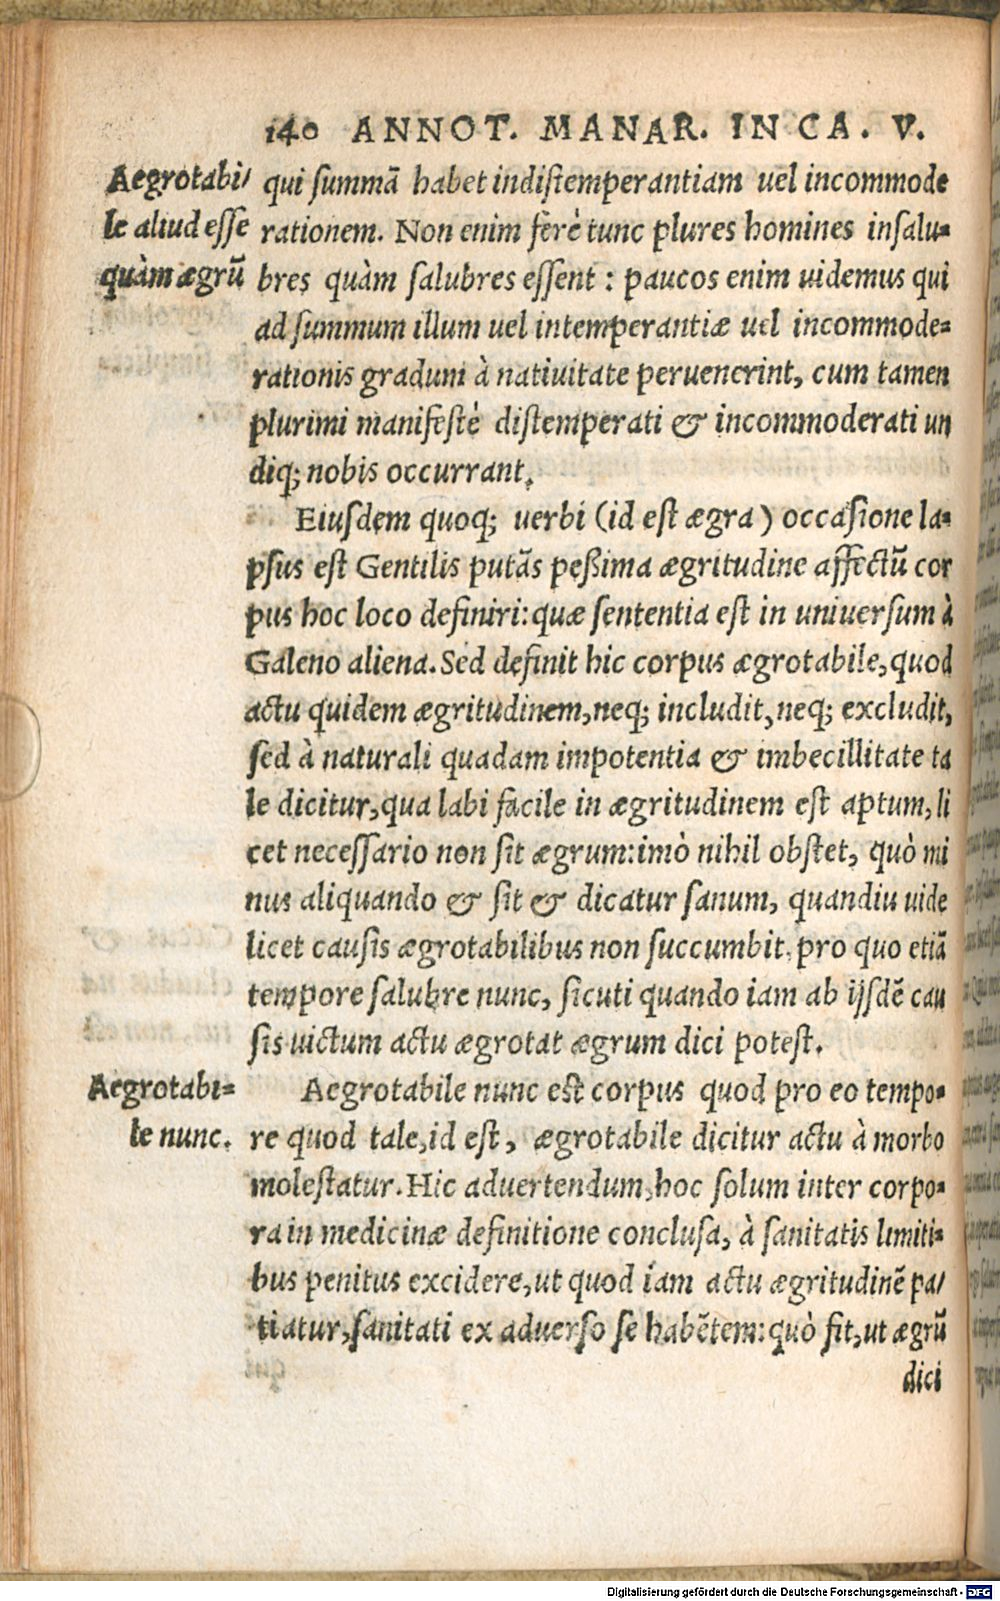 140 ANNOT. MANAR. IN CA. V.
Aegrotabi/
le aliud esse
quàm ægrũ
qui summã habet indistemperantiam uel incommode
rationem. Non enim ferè tunc plures homines insalu-
bres quàm salubres essent : paucos enim uidemus qui
ad summum illum uel intemperantiæ uel incommode-
rationis gradum à natiuitate peruenerint, cum tamen
plurimi manifestè distemperati & incommoderati un
diq; nobis occurrant.
Eiusdem quoq; uerbi (id est ægra) occasione la-
psus est Gentilis putãs peßima ægritudine affectũ cor
pus hoc loco definiri: quæ sententia est in uniuersum à
Galeno aliena. Sed definit hic corpus ægrotabile, quod
actu quidem ægritudinem, neq; includit, neq; excludit,
sed à naturali quadam impotentia & imbecillitate ta
le dicitur, qua labi facile in ægritudinem est aptum, li
cet necessario non sit ægrum: imò nihil obstet, quò mi
nus aliquando & sit & dicatur sanum, quandiu uide
licet causis ægrotabilibus non succumbit. pro quo etiã
tempore salubre nunc, sicuti quando iam ab ijsdẽ cau
sis uictum actu ægrotat ægrum dici potest.
Aegrotabi-
le nunc.
Aegrotabile nunc est corpus quod pro eo tempo-
re quod tale, id est, ægrotabile dicitur actu à morbo
molestatur. Hic aduertendum, hoc solum inter corpo-
ra in medicinæ definitione conclusa, à sanitatis limiti-
bus penitus excidere, ut quod iam actu ægritudinẽ pa/
tiatur, sanitati ex aduerso se habẽtem: quò fit, ut ægrũ
dici
Digitalisierung gefördert durch die Deutsche Forschungsgemeinschaft - DFG